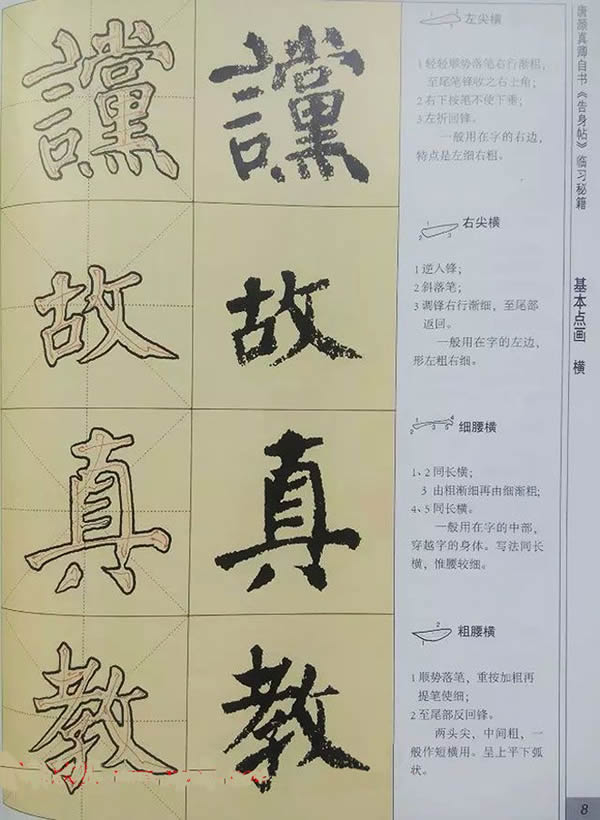 唐颜真卿自书《告身帖》临习秘籍
基本点画 横
讜
讜
1
2
3
左尖横
1 轻轻顺势落笔右行渐粗，
至尾笔锋收之右上角；
2 右下按笔不使下垂；
3 左折回锋。
一般用在字的右边，
特点是左细右粗。
故
故
1
2
3
右尖横
1 逆入锋；
2 斜落笔；
3 调锋右行渐细，至尾部
返回。
一般用在字的左边，
形左粗右细。
真
真
1
2
3
5
4
细腰横
1、2 同长横；
3 由粗渐细再由细渐粗；
4、5 同长横。
一般用在字的中部，
穿越字的身体。写法同长
横，惟腰较细。
教
教
1
2
粗腰横
1 顺势落笔，重按加粗再
提笔使细；
2 至尾部反回锋。
两头尖，中间粗，一
般作短横用。呈上平下弧
状。
8